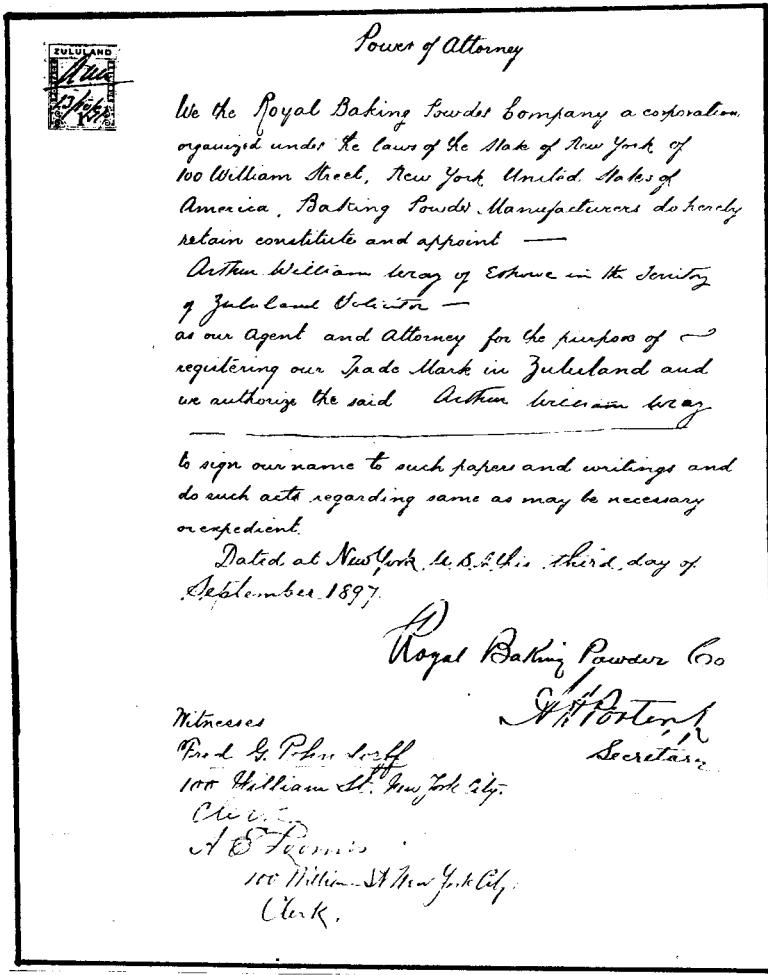 Power of Attorney
ZULULAND
We the Royal Baking Powder Company a corporation
organized under the laws of the State of New York of
100 William Street, New York United States of
America, Baking Powder Manufacturers do hereby
retain constitute and appoint —
Arthur William Wray of Eshowe in the Territory
of Zululand Solicitor —
as our Agent and Attorney for the purpose of
registering our Trade Mark in Zululand and
we authorize the said Arthur William Wray
to sign our name to such papers and writings and
do such acts regarding same as may be necessary
or expedient.
Dated at New York U.S.A this third day of
September 1897.
Royal Baking Powder Co
Secretary
Witnesses
Fred G.
100 William St. New York City.
Clerk
A E Loomis
100 William St New York City.
Clerk.